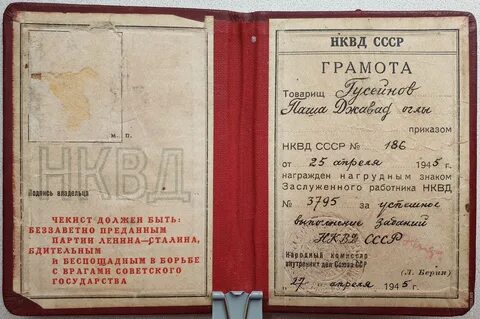 М. П.
НКВД
Подпись владельца
ЧЕКИСТ ДОЛЖЕН БЫТЬ:
БЕЗЗАВЕТНО ПРЕДАННЫМ
ПАРТИИ ЛЕНИНА—СТАЛИНА,
БДИТЕЛЬНЫМ
И БЕСПОЩАДНЫМ В БОРЬБЕ
С ВРАГАМИ СОВЕТСКОГО
ГОСУДАРСТВА
НКВД СССР
ГРАМОТА
Товарищ Гусейнов
Паша Джавад оглы
приказом
НКВД СССР № 186
от 25 апреля 1945 г.
награжден нагрудным знаком
Заслуженного работника НКВД
№ 3795 за успешное
выполнение заданий
НКВД СССР
Народный комиссар
внутренних дел Союза ССР
(Л. Берия)
"27" апреля 1945 г.